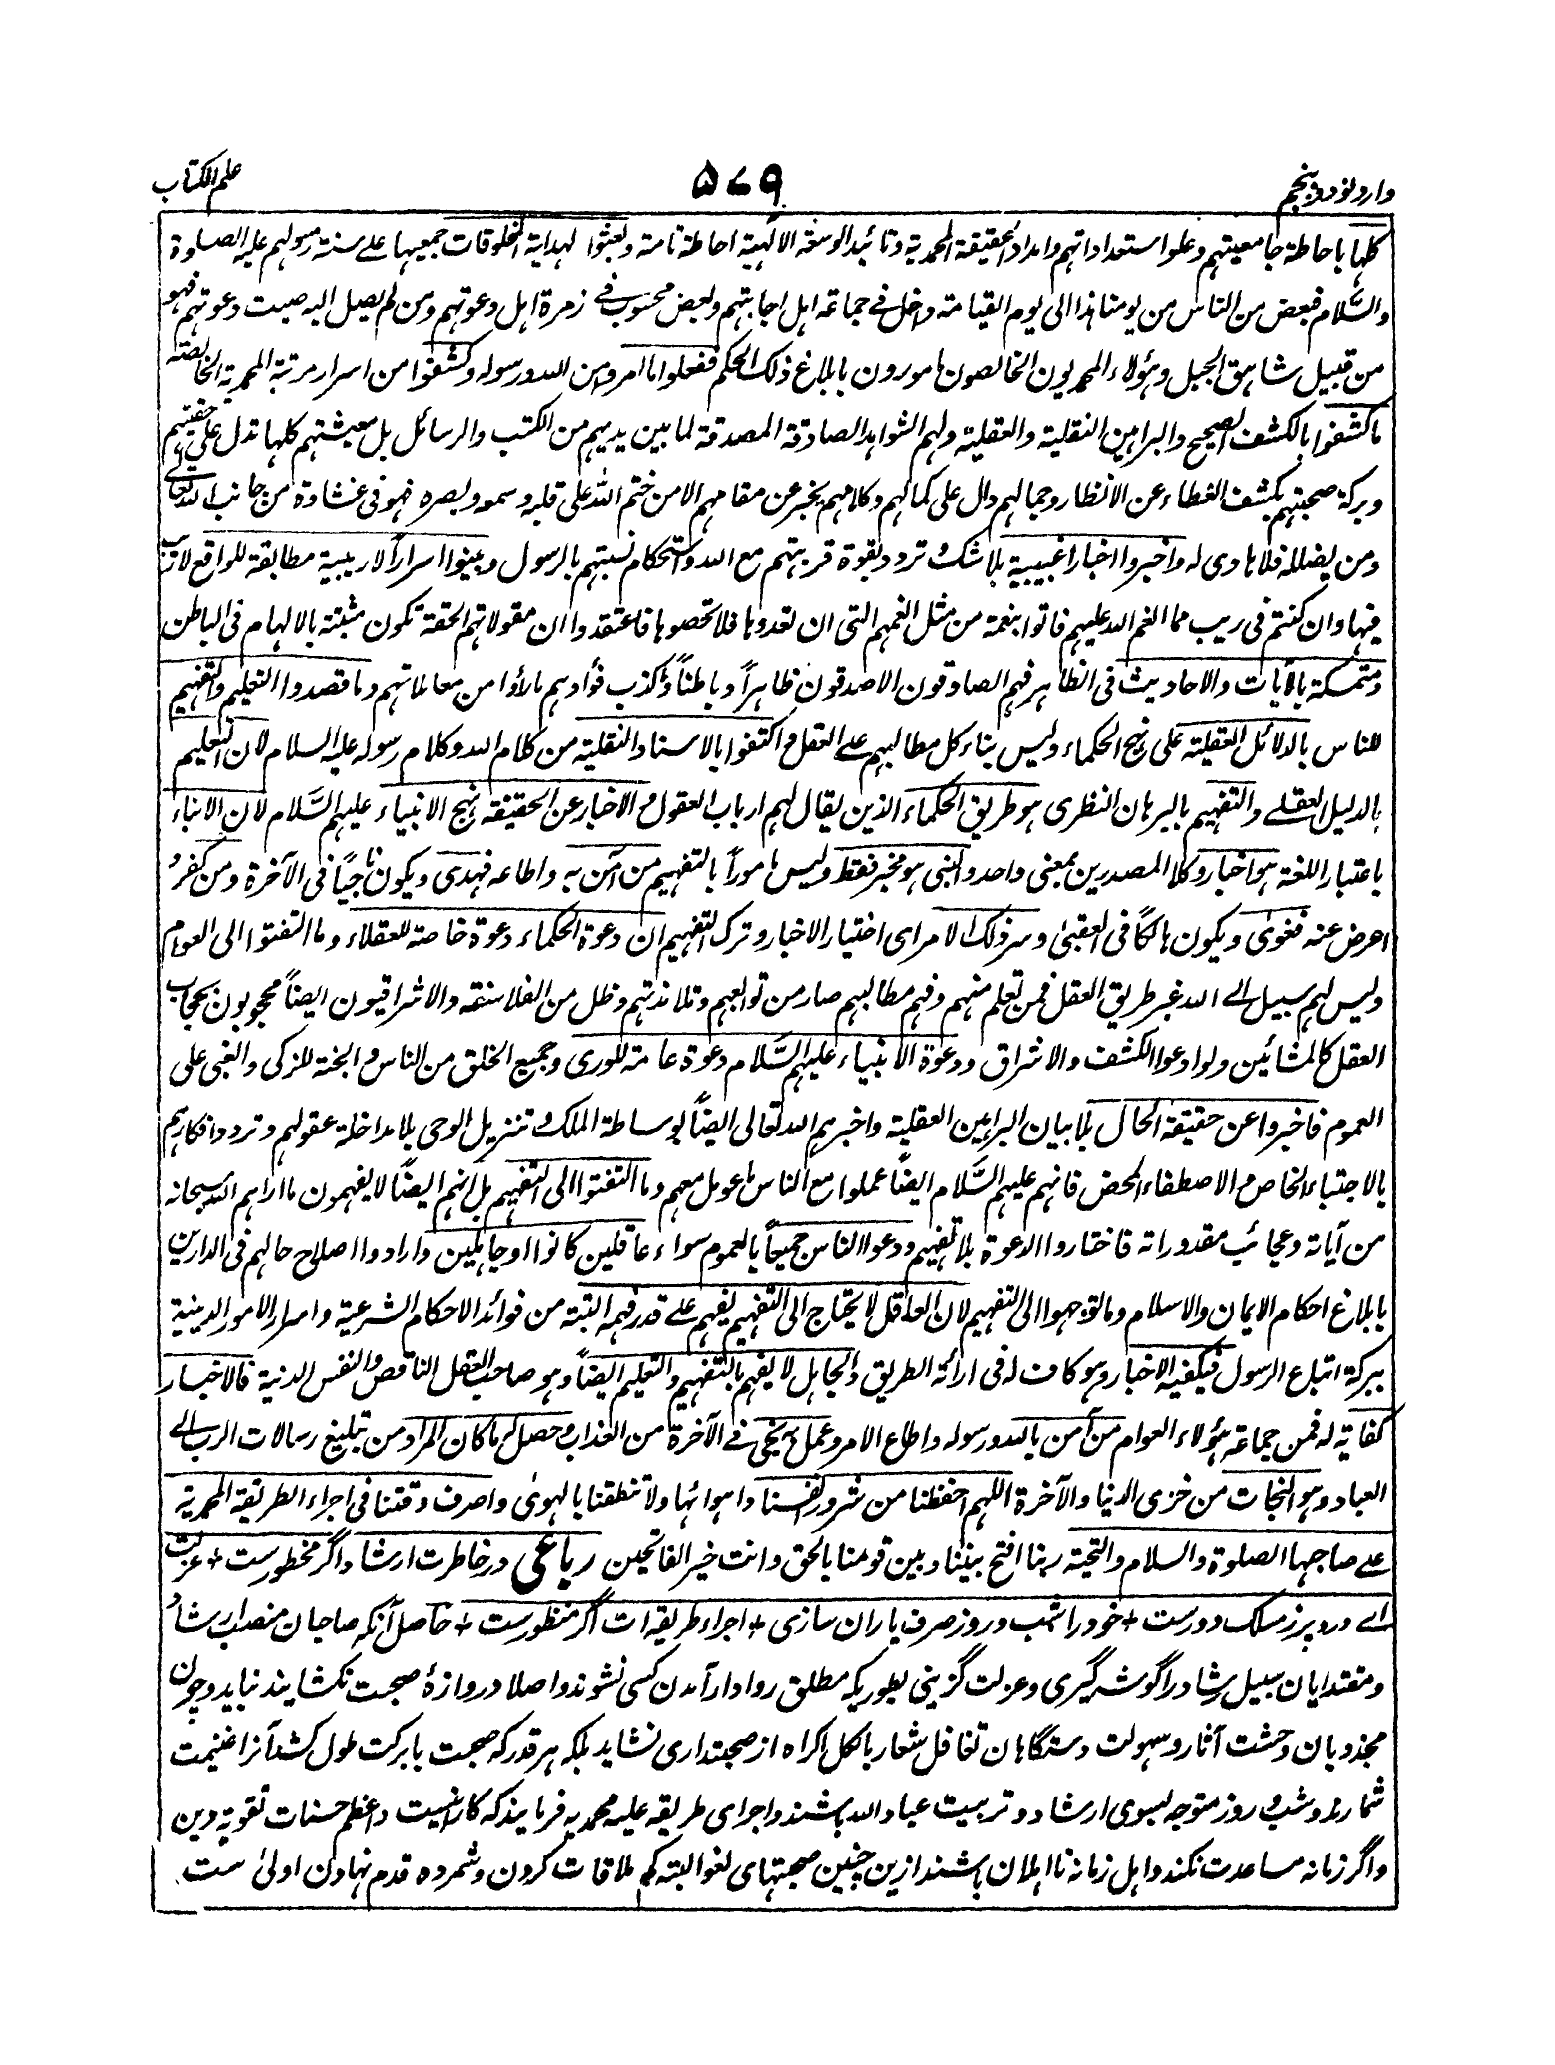 وارد نود و پنجم
۵۷۹
علم الکتاب
کلها باحاطة جامعیتهم وعلو استعداداتهم وامداد الحقیقة المحمدیة وتائید الوسعة الالٰهیة احاطة تامة وبعثوا لهدایة المخلوقات جمیعها علے سنة رسولهم علیه الصلوة
والسَّلام فبعض من الناس من یومنا هذا الی یوم القیامة داخل فے جماعة اهل اجابتهم وبعض محسوب فے زمرة اهل دعوتهم ومن لم یصل الیه صیت دعوتهم فهو
من قبیل شاهق الجبل وهؤلاء المحمدیون الخالصون مامورون بابلاغ ذلک الحکم ففعلوا ما امروا من الله ورسوله وکشفوا من اسرار مرتبة المحمدیة الخالصة
ما کشفوا بالکشف الصحیح والبراهین النقلیة والعقلیة ولهم الشواهد الصادقة المصدقة لما بین یدیهم من الکتب والرسائل بل معیشتهم کلها تدل علی حقیتهم
وبرکة صحبتهم یکشف الغطاء عن الانظار وجمالهم دال علی کمالهم وکلامهم یخبر عن مقامهم الا من ختم الله علی قلبه وسمعه وبصره فهو فی غشاوة من جانب الله تعالے
ومن یضلله فلا هادی له واخبروا اخبارا غیبیة بلا شک وتردد بقوة قربتهم مع الله واستحکام نسبتهم بالرسول وبینوا اسراراً لاریبیة مطابقة للواقع لا ریب
فیها وان کنتم فی ریب مما انعم الله علیهم فاتوا بنعمة من مثل النعم التی ان تعدوها فلا تحصوها فاعتقدوا ان مقولاتهم الحقة تکون مثبتة بالالهام فی الباطن
ومتمسکة بالآیات والاحادیث فی الظاهر فهم الصادقون الاصدقون ظاهراً وباطناً وما کذب فؤادهم ما رأوا من معاملاتهم وما قصدوا التعلیم والتفهیم
للناس بالدلائل العقلیة علی نهج الحکماء ولیس بناء کل مطالبهم علے العقل واکتفوا بالاسناد النقلیة من کلام الله وکلام رسوله علیه السلام لان التعلیم
بالدلیل العقلے والتفهیم بالبرهان النظری هو طریق الحکماء الذین یقال لهم ارباب العقول والاخبار عن الحقیقة نهج الانبیاء علیهم السَّلام لان الانباء
باعتبار اللغة هو اخبار وکلا المصدرین بمعنی واحد والنبی هو مخبر فقط ولیس ماموراً بالتفهیم من آمن به واطاعه فهدی ویکون ناجیاً فی الآخرة ومن کفر و
اعرض عنه فغویٰ ویکون هالکاً فی العقبیٰ وسر ذلک الامر ای اختیار الاخبار وترک التفهیم ان دعوة الحکماء دعوة خاصة للعقلاء وما التفتوا الی العوام
ولیس لهم سبیل الے الله غیر طریق العقل فمن تعلم منهم وفهم مطالبهم صار من توابعهم وتلامذتهم وظل من الفلاسفة والاشراقیون ایضاً محجوبون بحجاب
العقل کالمشائین ولو ادعوا الکشف والاشراق ودعوة الانبیاء علیهم السَّلام دعوة عامة للوری وجمیع الخلق من الناس والجنة للزکی والغبی علی
العموم فاخبروا عن حقیقة الحال بلا بیان البراهین العقلیة واخبرهم الله تعالی ایضاً بوساطة الملک وتنزیل الوحی بلا مداخلة عقولهم وتردد افکارهم
بالاجتباء الخاص والاصطفاء المحض فانهم علیهم السَّلام ایضاً عملوا مع الناس ما عومل معهم وما التفتوا الی التفهیم بل انهم ایضاً لا یفهمون ما اراهم الله سبحانه
من آیاته وعجائب مقدوراته فاختاروا الدعوة بلا تفهیم ودعوا الناس جمیعاً بالعموم سواء عاقلین کانوا او جاهلین وارادوا اصلاح حالهم فی الدارین
بابلاغ احکام الایمان والاسلام وما توجهوا الی التفهیم لان العاقل لا یحتاج الی التفهیم یفهم علے قدر فهمه البتة من فوائد الاحکام الشرعیة واسرار الامور الدینیة
ببرکة اتباع الرسول فیکفیه الاخبار وهو کاف له فی ارائة الطریق والجاهل لا یفهم بالتفهیم والتعلیم ایضاً وهو صاحب العقل الناقص والنفس الدنیة فالاخبار
کفایة له فمن جماعة هؤلاء العوام من آمن بالله ورسوله واطاع الامر وعمل به ینجی فے الآخرة من العذاب وحصل له ما کان المراد من تبلیغ رسالات الرب الے
العباد وهو النجات من خزی الدنیا والآخرة اللهم احفظنا من شرور انفسنا واهوائها ولا تنطقنا بالهویٰ واصرف وقتنا فی اجراء الطریقة المحمدیة
علے صاحبها الصلوة والسلام والتحیة ربنا افتح بیننا وبین قومنا بالحق وانت خیر الفاتحین رباعی در خاطرت ارشاد اگر مخطورست + عزلت
اے درد پرز مسلک دورست + خود را شب و روز صرف یاران سازی + اجراء طریقه ات اگر منظورست + حاصل آنکه صاحبان منصب ارشاد
و مقتدایان سبیل رشاد را گوشه گیری و عزلت گزینی بطوریکه مطلق روادار آمدن کسی نشوند و اصلا دروازۂ صحبت نکشایند نباید و چون
مجذوبان وحشت آثار و سهولت دستگاهان تغافل شعار بالکل اکراه از صحبتداری نشاید بلکه هر قدر که صحبت بابرکت طول کشد آنرا غنیمت
شمارند و شب و روز متوجه بسوی ارشاد و تربیت عباد الله باشند و اجرای طریقه علیه محمدیه فرمایند که کار اینست و اعظم حسنات تقویۀ دین
و اگر زمانه مساعدت نکند و اهل زمانه نااهلان باشند ازین چنین صحبتهای لغو البته کم ملاقات کردن و شمرده قدم نهادن اولیٰ ست